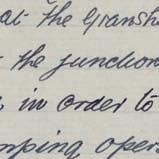 at the Gransh
the junction
in order to
mping oper